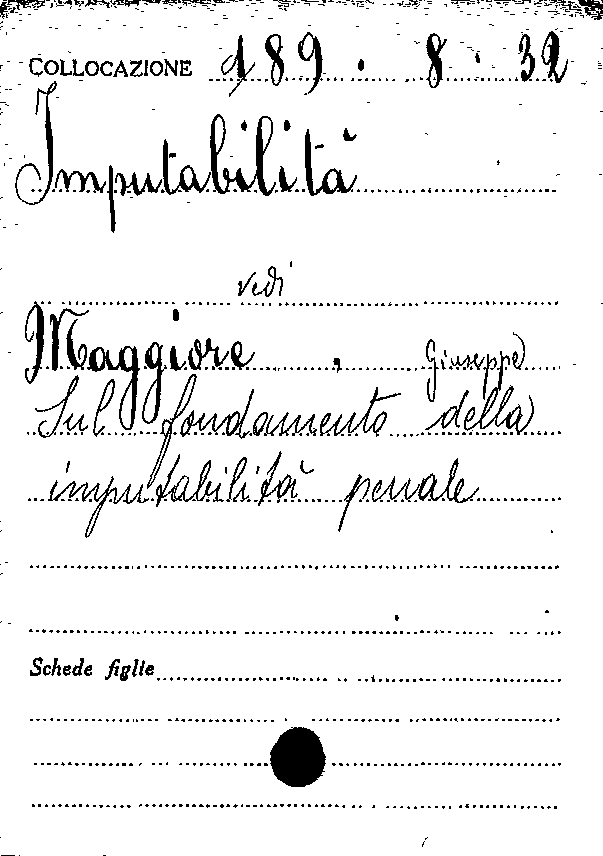 COLLOCAZIONE 189 . 8 . 32
Imputabilità
vedi
Maggiore , Giuseppe
Sul fondamento della
imputabilità penale
Schede figlie